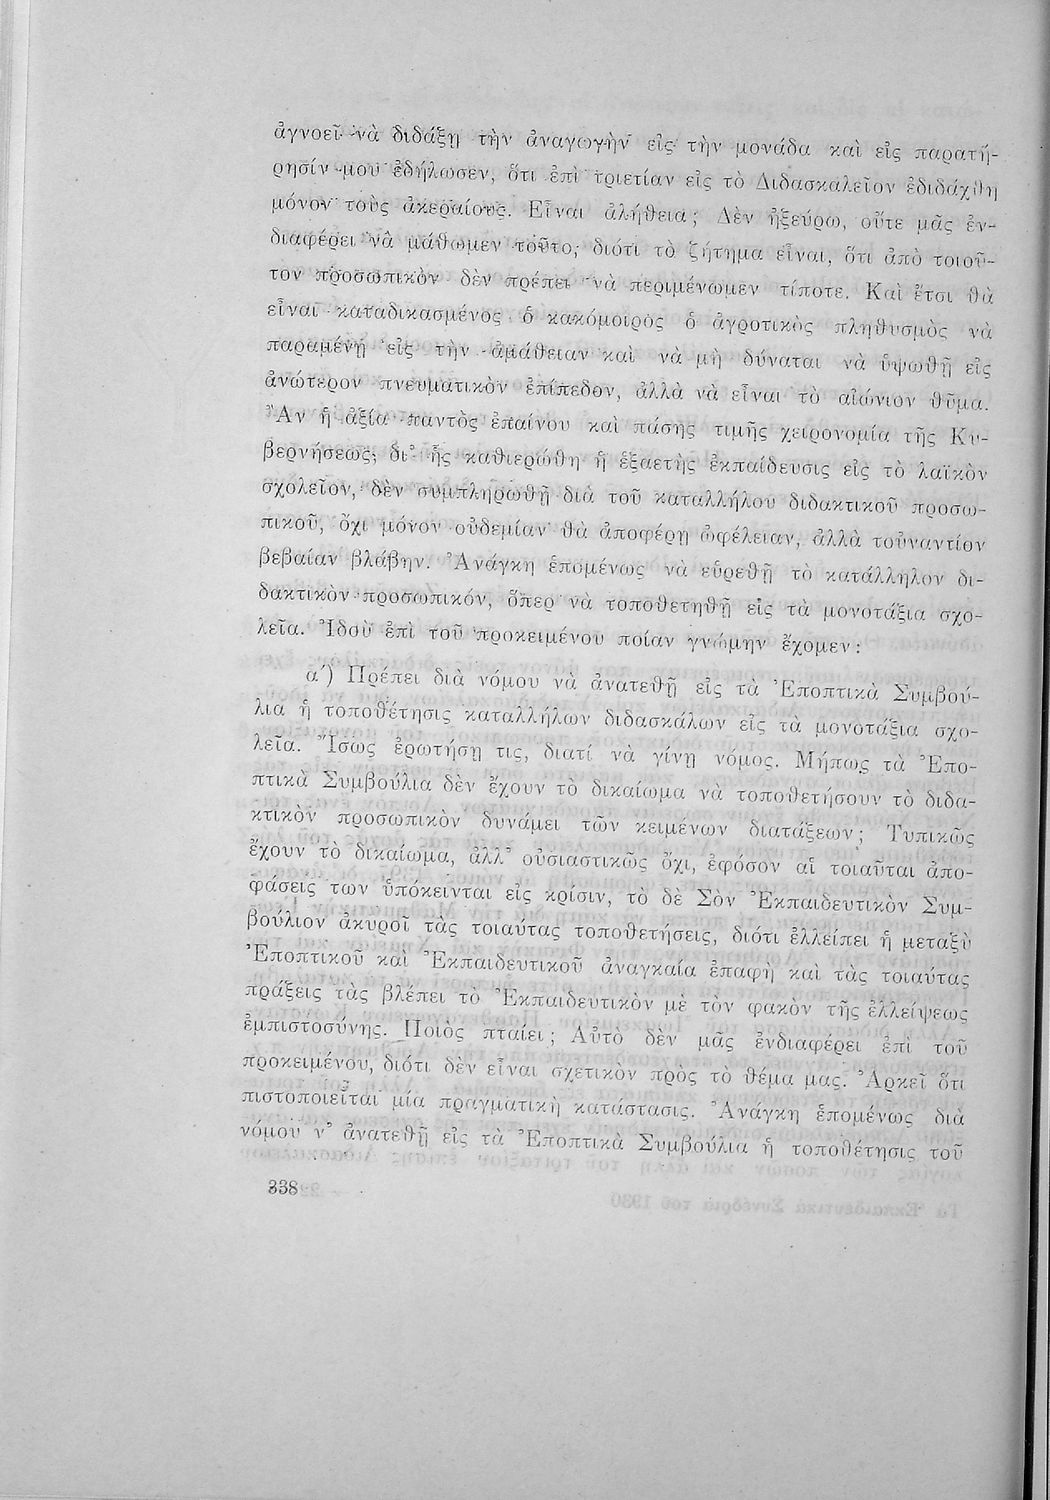 ἀγνοεῖ νὰ διδάξῃ τὴν ἀναγωγὴν εἰς τὴν μονάδα καὶ εἰς παρατή-
ρησίν μου ἐδήλωσεν, ὅτι ἐπὶ τριετίαν εἰς τὸ Διδασκαλεῖον ἐδιδάχθη
μόνον τοὺς ἀκεραίους. Εἶναι ἀλήθεια; Δὲν ἠξεύρω, οὔτε μᾶς ἐν-
διαφέρει νὰ μάθωμεν τοῦτο, διότι τὸ ζήτημα εἶναι, ὅτι ἀπὸ τοιοῦ-
τον προσωπικὸν δὲν πρέπει νὰ περιμένωμεν τίποτε. Καὶ ἔτσι θὰ
εἶναι καταδικασμένος ὁ κακόμοιρος ὁ ἀγροτικὸς πληθυσμὸς νὰ
παραμένῃ εἰς τὴν ἀμάθειαν καὶ νὰ μὴ δύναται νὰ ὑψωθῇ εἰς
ἀνώτερον πνευματικὸν ἐπίπεδον, ἀλλὰ νὰ εἶναι τὸ αἰώνιον θῦμα.
Ἂν ἡ ἀξία παντὸς ἐπαίνου καὶ πάσης τιμῆς χειρονομία τῆς Κυ-
βερνήσεως, δι᾽ ἧς καθιερώθη ἡ ἑξαετὴς ἐκπαίδευσις εἰς τὸ λαϊκὸν
σχολεῖον, δὲν συμπληρωθῇ διὰ τοῦ καταλλήλου διδακτικοῦ προσω-
πικοῦ, ὄχι μόνον οὐδεμίαν θὰ ἀποφέρῃ ὠφέλειαν, ἀλλὰ τοὐναντίον
βεβαίαν βλάβην. Ἀνάγκη ἑπομένως νὰ εὑρεθῇ τὸ κατάλληλον δι-
δακτικὸν προσωπικόν, ὅπερ νὰ τοποθετηθῇ εἰς τὰ μονοτάξια σχο-
λεῖα. Ἰδοὺ ἐπὶ τοῦ προκειμένου ποίαν γνώμην ἔχομεν:
α΄) Πρέπει διὰ νόμου νὰ ἀνατεθῇ εἰς τὰ Ἐποπτικὰ Συμβού-
λια ἡ τοποθέτησις καταλλήλων διδασκάλων εἰς τὰ μονοτάξια σχο-
λεῖα. Ἴσως ἐρωτήσῃ τις, διατί νὰ γίνῃ νόμος. Μήπως τὰ Ἐπο-
πτικὰ Συμβούλια δὲν ἔχουν τὸ δικαίωμα νὰ τοποθετήσουν τὸ διδα-
κτικὸν προσωπικὸν δυνάμει τῶν κειμένων διατάξεων; Τυπικῶς
ἔχουν τὸ δικαίωμα, ἀλλ᾽ οὐσιαστικῶς ὄχι, ἐφόσον αἱ τοιαῦται ἀπο-
φάσεις των ὑπόκεινται εἰς κρίσιν, τὸ δὲ Σὸν Ἐκπαιδευτικὸν Συμ-
βούλιον ἀκυροῖ τὰς τοιαύτας τοποθετήσεις, διότι ἐλλείπει ἡ μεταξὺ
Ἐποπτικοῦ καὶ Ἐκπαιδευτικοῦ ἀναγκαία ἐπαφὴ καὶ τὰς τοιαύτας
πράξεις τὰς βλέπει τὸ Ἐκπαιδευτικὸν μὲ τὸν φακὸν τῆς ἐλλείψεως
ἐμπιστοσύνης. Ποιὸς πταίει; Αὐτὸ δὲν μᾶς ἐνδιαφέρει ἐπὶ τοῦ
προκειμένου, διότι δὲν εἶναι σχετικὸν πρὸς τὸ θέμα μας. Ἀρκεῖ ὅτι
πιστοποιεῖται μία πραγματικὴ κατάστασις. Ἀνάγκη ἑπομένως διὰ
νόμου ν᾽ ἀνατεθῇ εἰς τὰ Ἐποπτικὰ Συμβούλια ἡ τοποθέτησις τοῦ
338